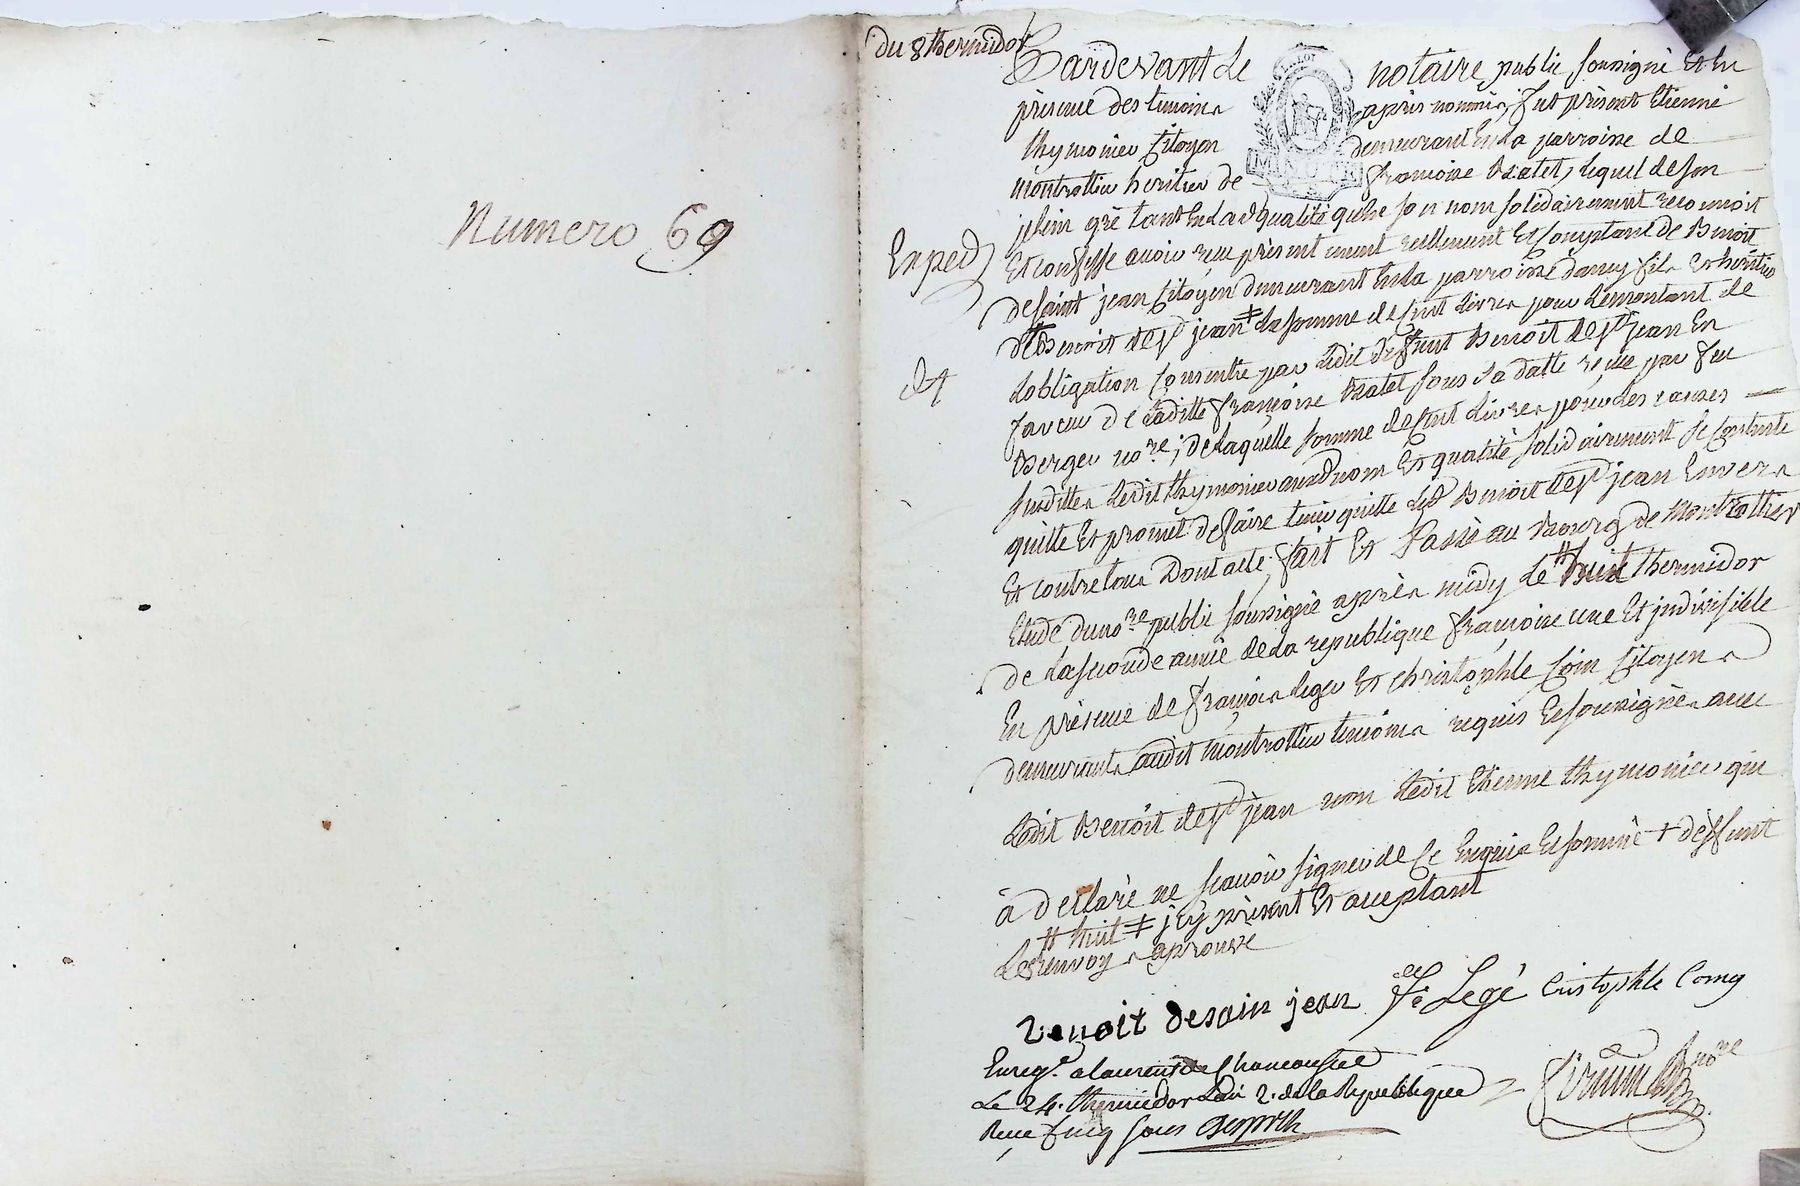 Numero 69
du 8 thermidor
Pardevant Le notaire public soussigné Et En
présence des temoins après nommés, fut présent Etienne
thymonier Citoyen demeurant En la parroisse de
montrottier heritier de francoise Bratet, lequel de son
plein gré tant En lad qualité qu'en son nom solidairement reconnoit
Exped
Et confesse avoir reçu présentement reellement Et Comptant de Benoit
de saint jean Citoyen demeurant En la parroisse dancy fils Et heritier
de † Benoit de st jean ‡ la somme de Cent livres pour le montant de
d4
Lobligation Consentie par Ledit deffunt Benoit de st jean En
faveur de Laditte françoise Bratet sous sa datte reçue par feu
Berger nore; de laquelle somme de Cent livres pour les causes
susdittes Ledit thymonier auxd nom Et qualité solidairement se Contente
quitte Et promet de faire tenir quitte Led Benoit de st jean Envers
Et contre tous Dont acte. fait Et Passé au Bourg de Montrottier
Etude du nore public soussigné après midy Le # huit thermidor
de la seconde année de la republique françoise une Et jndivisible
En présence de françois leger Et Christophle Coin Citoyens
demeurants audit montrottier temoins requis Et soussignés avec
Ledit Benoit de st jean non Ledit Etienne thymonier qui
à déclaré ne sçavoir signer de Ce Enquis Et sommé † deffunt
# huit ‡ jcy présent Et acceptant
Les renvoys aprouvé
benoit desain jean fs Legé Cristophle Comg
Enreg. a laurent de Chamousset
Le 24. thermidor L'an 2. de la Republique
Reçu Cinq sous
nore